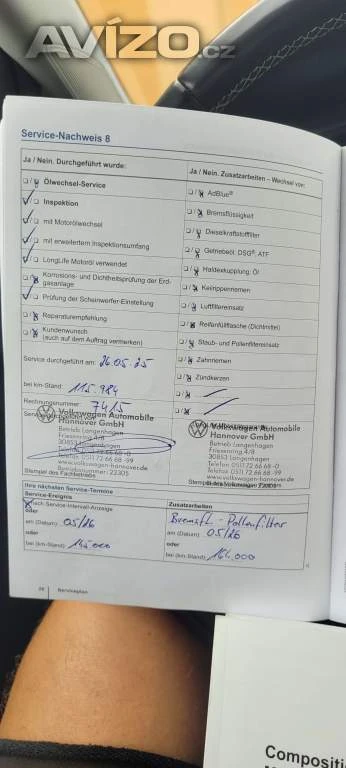 AVÍZO.cz
Service-Nachweis 8
Ja / Nein. Durchgeführt wurde:
Ja / Nein. Zusatzarbeiten – Wechsel von:
Ölwechsel-Service
AdBlue®
Inspektion
Bremsflüssigkeit
mit Motorölwechsel
Dieselkraftstofffilter
mit erweitertem Inspektionsumfang
Getriebeöl: DSG®: ATF
LongLife Motoröl verwendet
Haldexkupplung, Öl
Korrosions- und Dichtheitsprüfung der Erd-
gasanlage
Keilrippenriemen
Prüfung der Scheinwerfer-Einstellung
Luftfiltereinsatz
Reparaturempfehlung
Reifenfüllflasche (Dichtmittel)
Kundenwunsch
(auch auf dem Auftrag vermerken)
Staub- und Pollenfiltereinsatz
Zahnriemen
Service durchgeführt am: 26.05.25
Zündkerzen
bei km-Stand: 115.984
Rechnungsnummer: 7415
Volkswagen Automobile
Hannover GmbH
Betrieb Langenhagen
Friesenring 4/8
30853 Langenhagen
Telefon 0511 72 66 68 -0
Telefax 0511 72 66 68 -99
www.volkswagen-hannover.de
Betriebsnummer: 22305
Stempel des Fachbetriebs
Volkswagen Automobile
Hannover GmbH
Betrieb Langenhagen
Friesenring 4/8
30853 Langenhagen
Telefon 0511 72 66 68 -0
Telefax 0511 72 66 68 -99
www.volkswagen-hannover.de
Ihre nächsten Service-Termine
Service-Ereignis
Zusatzarbeiten
nach Service-Intervall-Anzeige
oder
Bremsfl. - Pollenfilter
am (Datum): 05/26
am (Datum): 05/26
oder
oder
bei (km-Stand): 145.000
bei (km-Stand): 164.000
Serviceplan
Compositio